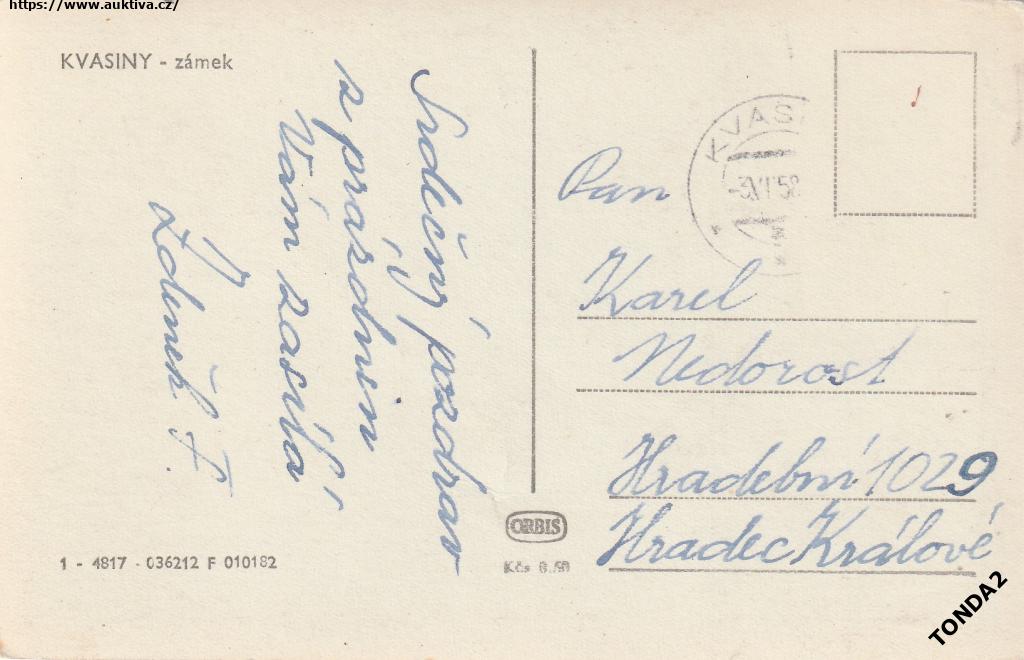 https://www.auktiva.cz/
KVASINY - zámek
Srdečný pozdrav
z prázdnin
Vám zasílá
Zdeněk F.
KVASI
Pan
Karel
Nedorost
Hradební 1029
Hradec Králové
ORBIS
Kčs 0.60
1 - 4817 - 036212 F 010182
TONDA2